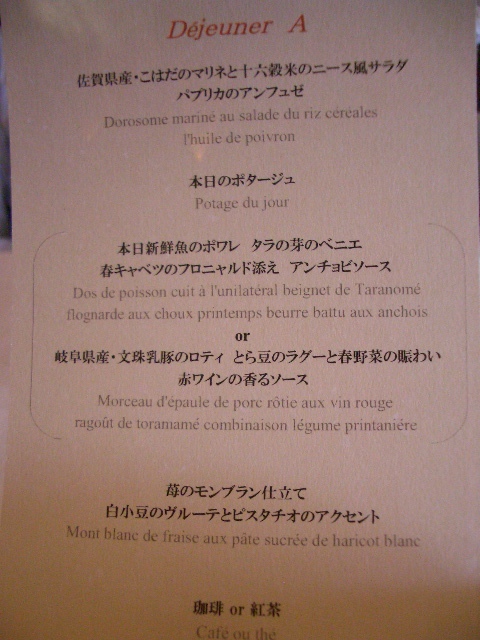 Déjeuner A
佐賀県産・こはだのマリネと十六穀米のニース風サラダ
パプリカのアンフュゼ
Dorosome mariné au salade du riz céréales
l'huile de poivron
本日のポタージュ
Potage du jour
本日新鮮魚のポワレ タラの芽のベニエ
春キャベツのフロニャルド添え アンチョビソース
Dos de poisson cuit à l'unilatéral beignet de Taranomé
flognarde aux choux printemps beurre battu aux anchois
or
岐阜県産・文殊乳豚のロティ とら豆のラグーと春野菜の賑わい
赤ワインの香るソース
Morceau d'épaule de porc rôtie aux vin rouge
ragoût de toramamé combinaison légume printanière
苺のモンブラン仕立て
白小豆のヴルーテとピスタチオのアクセント
Mont blanc de fraise aux pâte sucrée de haricot blanc
珈琲 or 紅茶
Café ou thé